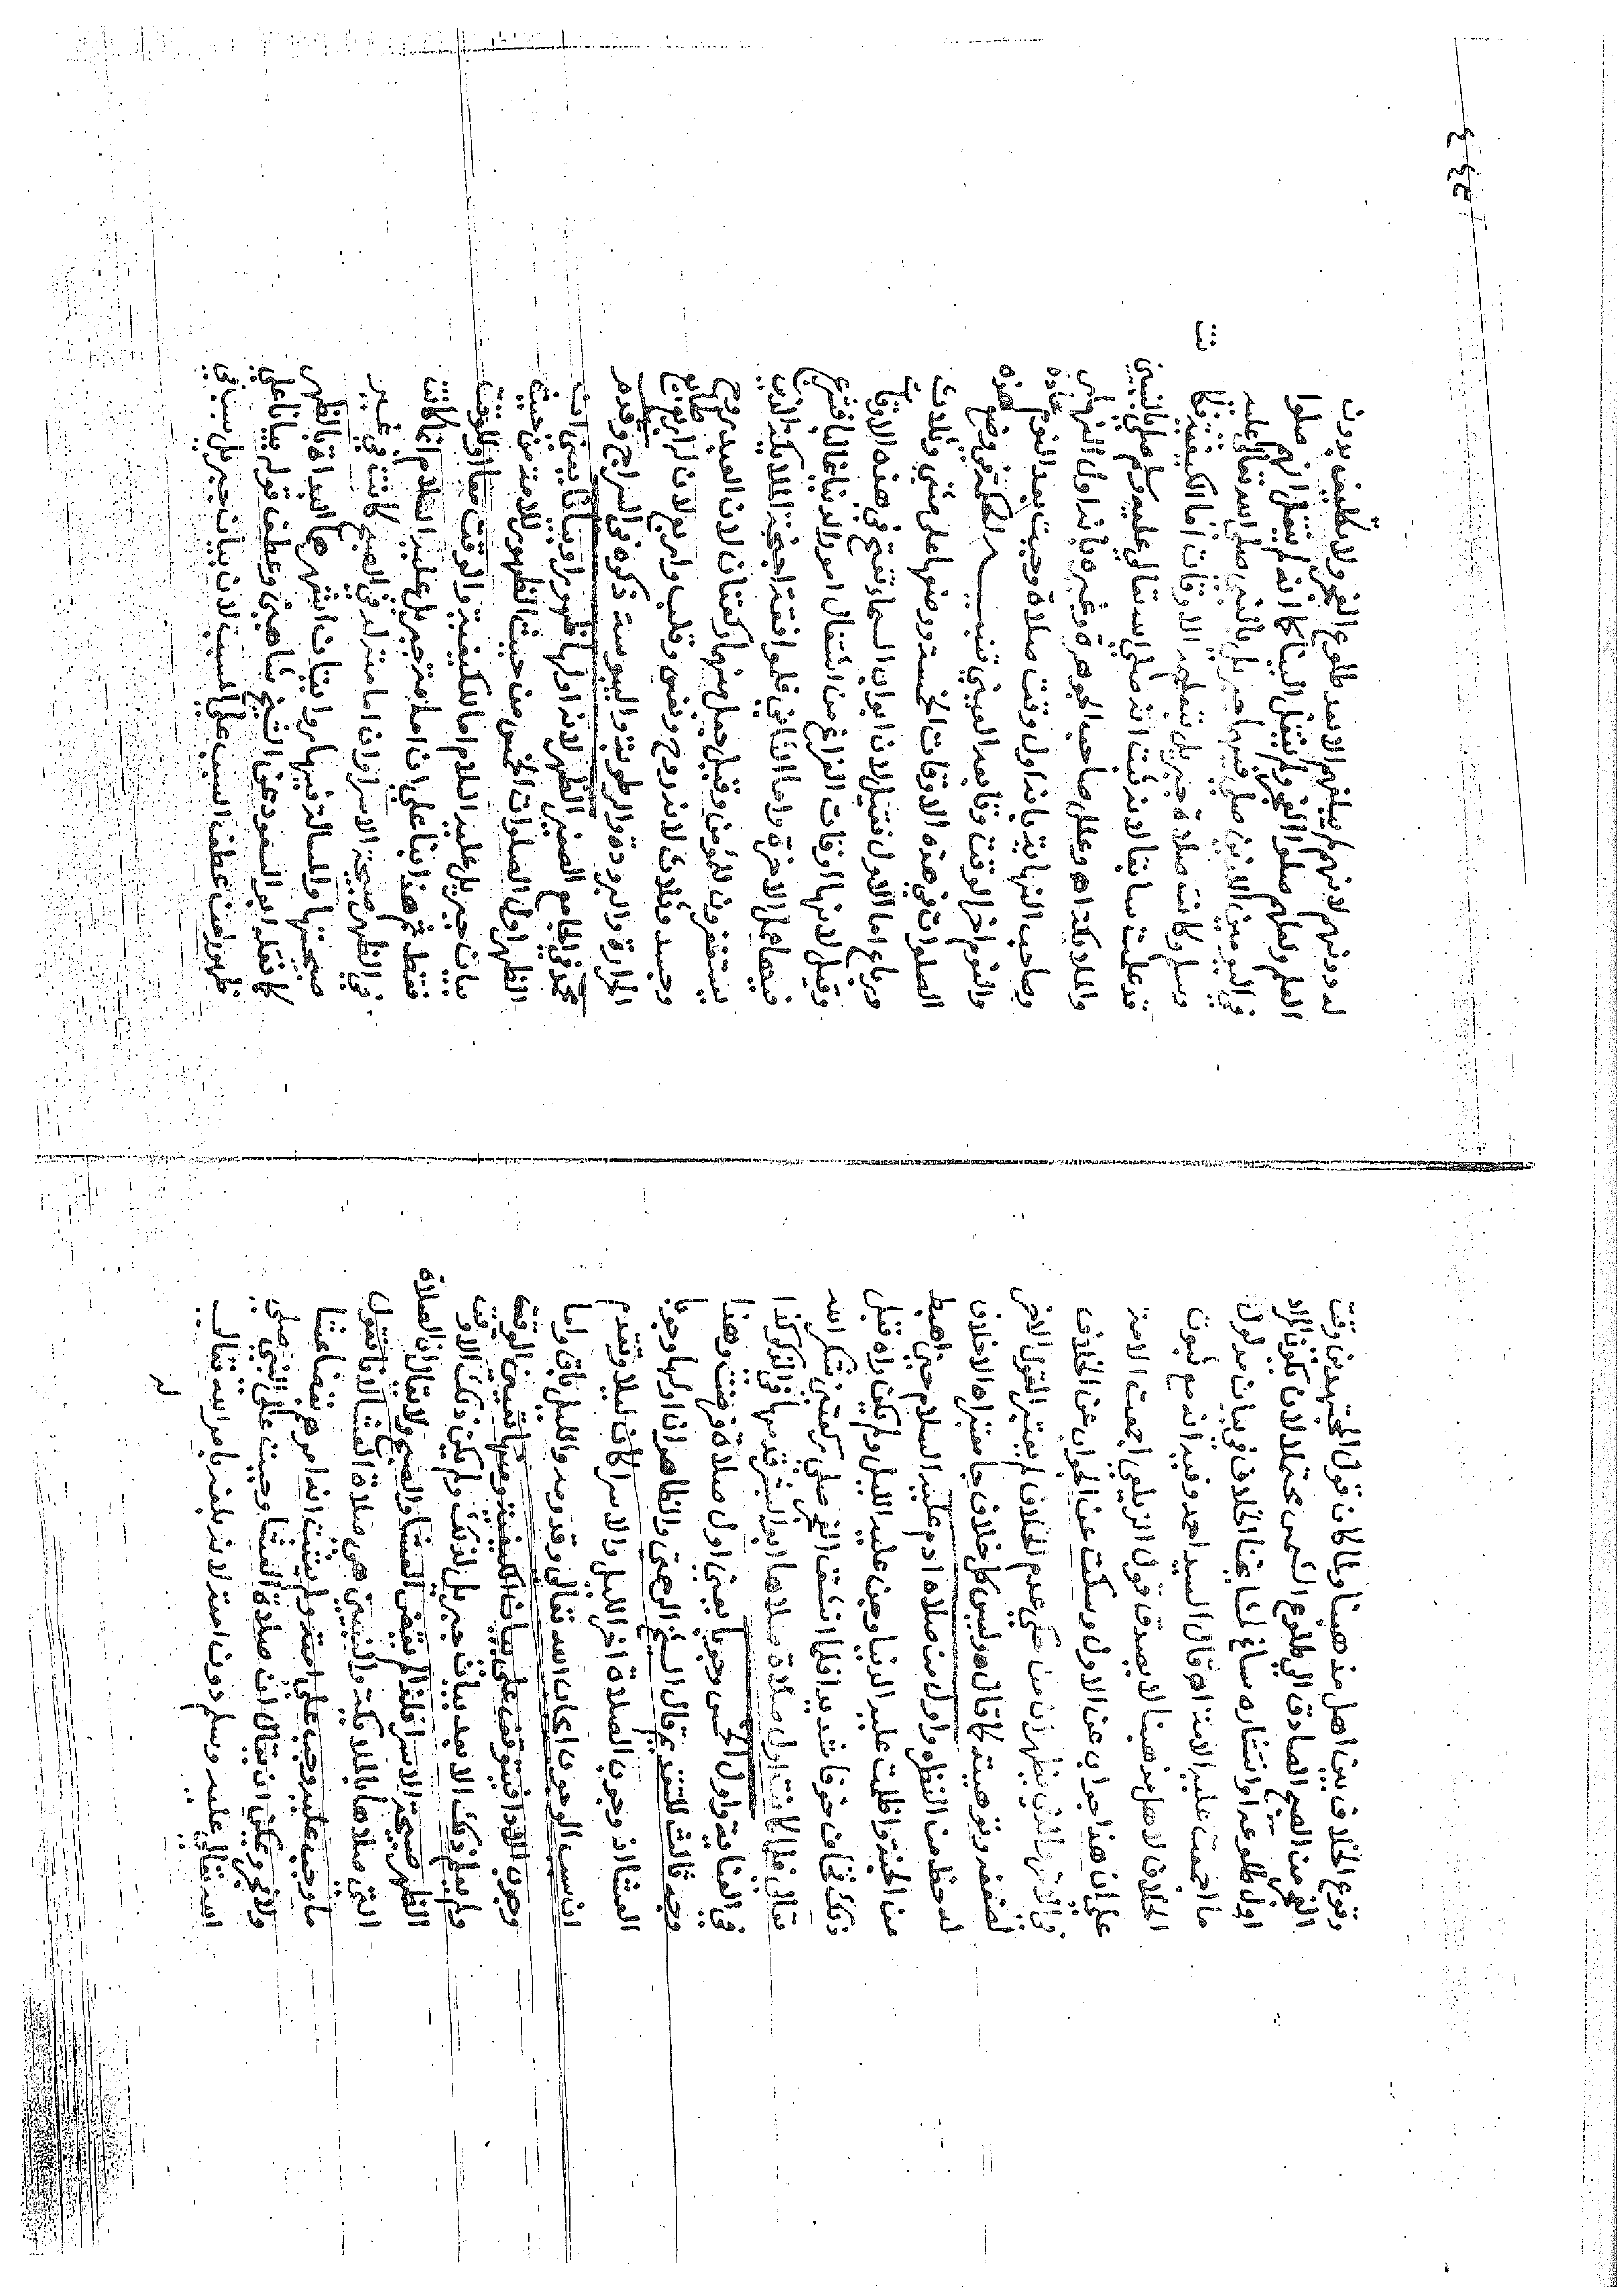 وقوع الخلاف بين اهل مذهبنا ولما كان قول المجتهدين وقت
الفجر من الصبح الصادق الى طلوع الشمس محتملا لان يكون المراد
اول طلوعه او انتشاره ساغ لمشايخنا الخلاف في بيان مدلول
ما اجمعت عليه الامة اهـ قال السيد احمد وفيه انه مع ثبوت
الخلاف لاهل مذهبنا لا يصدق قول الزيلعي اجمعت الامة
على ان هذا جواب عن الاول وسكت عن الجواب عن الخلاف
في الاخر والذي يظهر ان من حكى عدم الخلاف لم يعتبر القول الاخر
لضعفه وتوهينه كما قال وليس كل خلاف جا معتبرا الا خلاف
له حظ من النظر واول من صلاه ادم عليه السلام حين اهبط
من الجنة واظلمت عليه الدنيا وجن عليه الليل ولم يكن راه قبل
ذلك فخاف خوفا شديدا فلما انشق الفجر صلى ركعتين شكرا لله
تعالى فلما كانت اول صلاة صلاها ابو البشر قدمها في الذكر كذا
في العناية واول الخمس وجوبا يعني اول صلاة فرضت وهذا
وجه ثالث للتقديم قال الشيخ الرحمتي والظاهر ان اولها وجوبا
العشا اذ وجوب الصلاة اخر الليل والاسرا كان ليلا وتقدم
ان سبب الوجوب ايجاب الله تعالى وقد وجد والليل باق واما
وجوب الادا فيتوقف على بيان الكيفية ومنها تعيين الوقت
ولم يعلم ذلك الا بعد بيان جبريل لذلك ولم يكن ذلك الا وقت
الظهر صبيحة الاسرا فلذا لم يقض العشا والصبح ولا يقال ان الصلاة
التي صلاها بالملائكة والنبيين هي صلاة العشا لانا نقول
ما وجب عليه وجب على امته ولم يثبت انه امرهم بقضا عشا
ولا فجر ويمكن ان يقال ان صلاة العشا وجبت على النبي صلى
الله تعالى عليه وسلم دون امته لانه بلغه بامر الله تعالى
له
له دونهم لانهم لم يبلغهم الا بعد طلوع الفجر ولا تكليف بدون
العلم ولعلهم صلوا الفجر ولم ينقل الينا كما انه لم ينقل انهم صلوا
في اليومين الاذين صلى فيهما جبريل بالنبي صلى الله تعالى عليه
وسلم وكانت صلاة جبريل بتعليم الاوقات اما الكيفية فكانت
قد علمت سابقا لانه ثبت انه صلى الله تعالى عليه وسلم صلى بالنبيين
والملائكة اهـ وعلل صاحب الجوهرة وغيره بانه اول النهار
وصاحب النهاية بانه اول وقت صلاة وجبت بعد النوم
والنوم اخو الموت وتابعه العيني تنبيه الحكمة في وضع هذه
الصلوات في هذه الاوقات الخمسة ووضعها على مثنى وثلاث
ورباع اما الاول فقيل لان ابواب السما تفتح في هذه الاوقات
وقيل لانها اوقات الفراغ من اشتغال امور الدنيا غالبا فتفرغ
فيها عمل الاخرة واما الثاني فلموافقة اجنحة الملائكة الذين
يستغفرون للمؤمن وقيل جعل منها ركعتان لان العبد روح
وجسد وثلاث لانه روح ونفس وقلب واربع لانه اربع طبايع
الحرارة والبرودة والرطوبة واليبوسة ذكره في السراج وقدم
محمد في الجامع الصغير الظهر لانه اولها ظهورا وبيانا يعني ان
الظهر اول الصلوات الخمس من حيث الظهور للامة من حيث
بيان جبريل عليه السلام اما للكيفية والوقت معا او للوقت
فقط ثم هذا بنا على ان امامة جبريل عليه السلام انما كانت
في الظهر صبيحة الاسرا وان امامته له في الصبح كانت في غير
صبيحتها والمسالة فيها روايتان اشهرهما البداة بالظهر
كما نقله ابو السعود عن الشيخ شاهين وعطف قوله بيانا على
ظهورا من عطف السبب على المسبب لان بيان جبريل سبب في